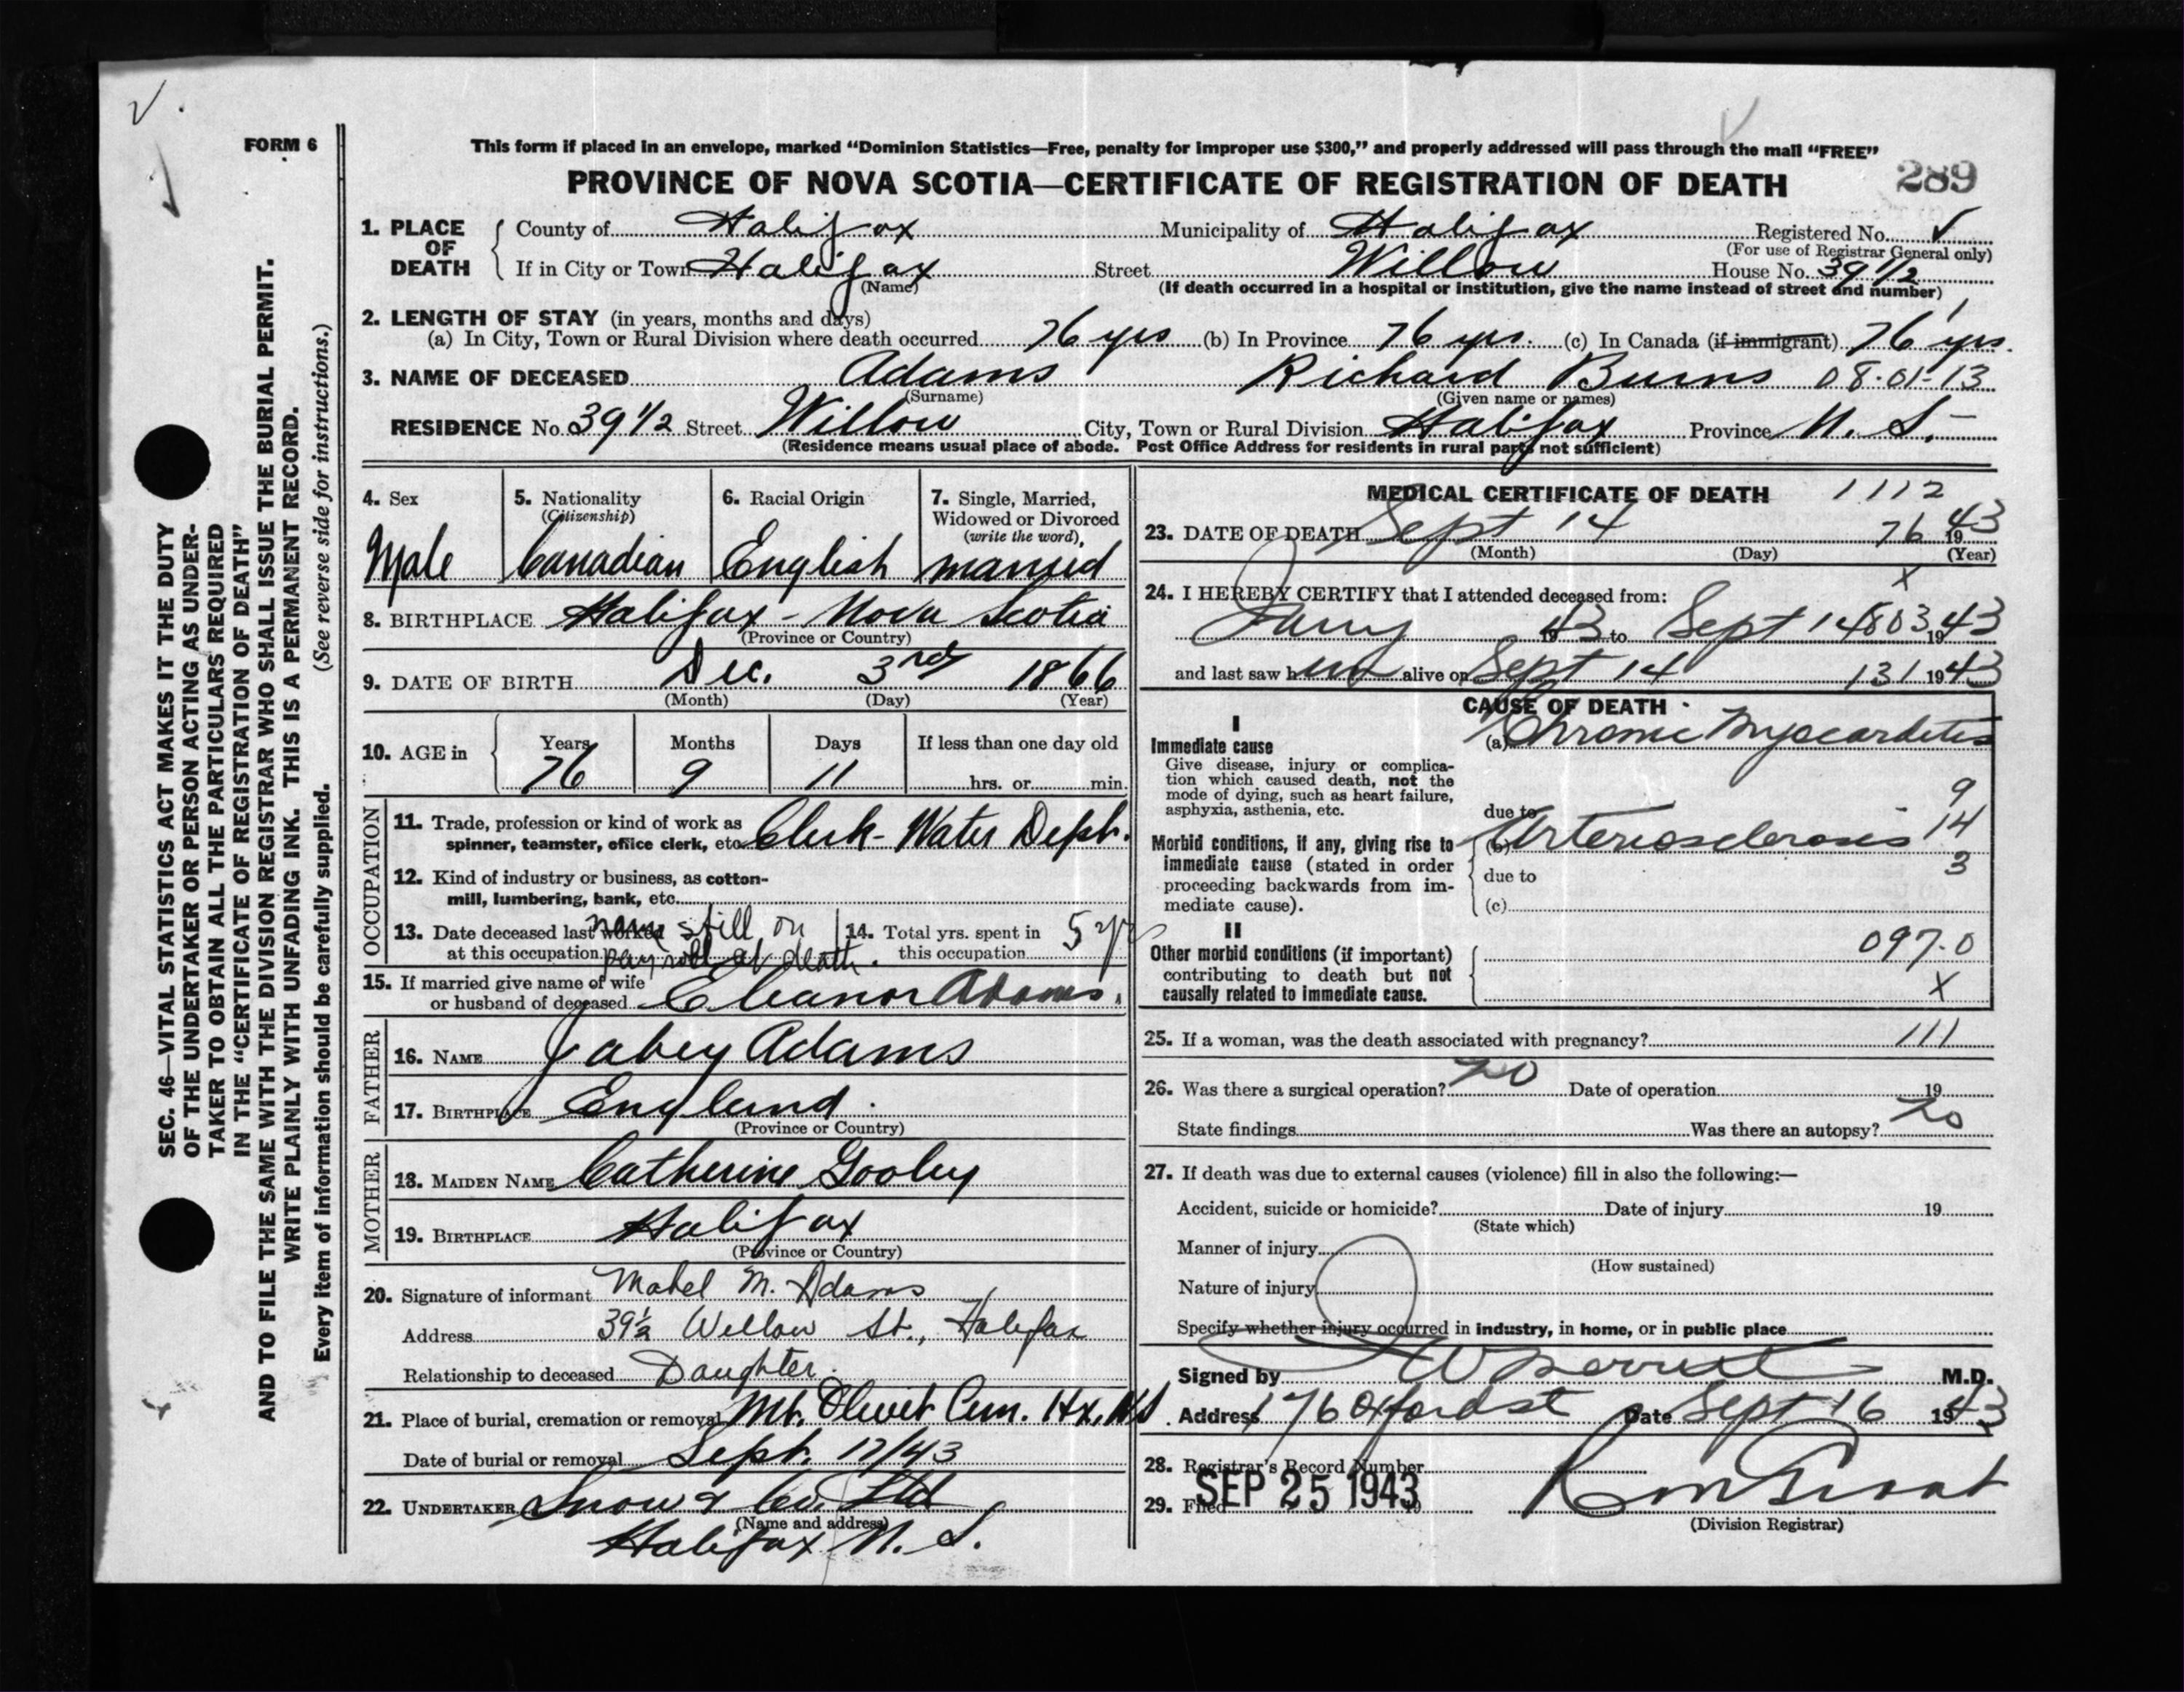 FORM 6
This form if placed in an envelope, marked “Dominion Statistics—Free, penalty for improper use $300,” and properly addressed will pass through the mail “FREE”
PROVINCE OF NOVA SCOTIA—CERTIFICATE OF REGISTRATION OF DEATH
289
1. PLACE OF DEATH
County of Halifax Municipality of Halifax Registered No.
(For use of Registrar General only)
If in City or Town Halifax Street Willow House No. 39 1/2
(Name) (If death occurred in a hospital or institution, give the name instead of street and number)
2. LENGTH OF STAY (in years, months and days)
(a) In City, Town or Rural Division where death occurred 76 yrs (b) In Province 76 yrs. (c) In Canada (if immigrant) 76 yrs.
3. NAME OF DECEASED Adams Richard Burns 08-01-13
(Surname) (Given name or names)
RESIDENCE No. 39 1/2 Street Willow City, Town or Rural Division Halifax Province N. S.
(Residence means usual place of abode. Post Office Address for residents in rural parts not sufficient)
4. Sex
Male
5. Nationality
(Citizenship)
Canadian
6. Racial Origin
English
7. Single, Married,
Widowed or Divorced
(write the word),
married
8. BIRTHPLACE Halifax - Nova Scotia
(Province or Country)
9. DATE OF BIRTH Dec. 3rd 1866
(Month) (Day) (Year)
10. AGE in Years Months Days If less than one day old
76 9 11 hrs. or min.
OCCUPATION
11. Trade, profession or kind of work as
spinner, teamster, office clerk, etc. Clerk - Water Dept.
12. Kind of industry or business, as cotton-
mill, lumbering, bank, etc.
13. Date deceased last worked name still on
at this occupation payroll at death.
14. Total yrs. spent in
this occupation 5 yrs
15. If married give name of wife
or husband of deceased Eleanor Adams.
FATHER
16. NAME Jabey Adams
17. BIRTHPLACE England.
(Province or Country)
MOTHER
18. MAIDEN NAME Catherine Gooley
19. BIRTHPLACE Halifax
(Province or Country)
20. Signature of informant Mabel M. Adams
Address 39½ Willow St., Halifax
Relationship to deceased Daughter.
21. Place of burial, cremation or removal Mt. Olivet Cem. Hx. N.S.
Date of burial or removal Sept. 17/43
22. UNDERTAKER Snow & Co. Ltd
(Name and address)
Halifax N. S.
MEDICAL CERTIFICATE OF DEATH 1112
23. DATE OF DEATH Sept 14 76 1943
(Month) (Day) (Year)
24. I HEREBY CERTIFY that I attended deceased from:
x
1943 to Sept 14 803 1943
and last saw him alive on Sept 14 131 1943
CAUSE OF DEATH
I
Immediate cause
Give disease, injury or complica-
tion which caused death, not the
mode of dying, such as heart failure,
asphyxia, asthenia, etc.
(a) Chronic Myocarditis
9
due to
Morbid conditions, if any, giving rise to
immediate cause (stated in order
proceeding backwards from im-
mediate cause).
(b) Arteriosclerosis 14
3
due to
(c)
II
Other morbid conditions (if important)
contributing to death but not
causally related to immediate cause.
097.0
X
25. If a woman, was the death associated with pregnancy? 111
26. Was there a surgical operation? no Date of operation 19
State findings Was there an autopsy? no
27. If death was due to external causes (violence) fill in also the following:—
Accident, suicide or homicide? Date of injury 19
(State which)
Manner of injury
(How sustained)
Nature of injury
Specify whether injury occurred in industry, in home, or in public place
Signed by M.D.
Address 176 Oxford st Date Sept 16 1943
28. Registrar's Record Number
29. Filed SEP 25 1943 19
(Division Registrar)
SEC. 46—VITAL STATISTICS ACT MAKES IT THE DUTY
OF THE UNDERTAKER OR PERSON ACTING AS UNDER-
TAKER TO OBTAIN ALL THE PARTICULARS REQUIRED
IN THE “CERTIFICATE OF REGISTRATION OF DEATH”
AND TO FILE THE SAME WITH THE DIVISION REGISTRAR WHO SHALL ISSUE THE BURIAL PERMIT.
WRITE PLAINLY WITH UNFADING INK. THIS IS A PERMANENT RECORD.
Every item of information should be carefully supplied. (See reverse side for instructions.)